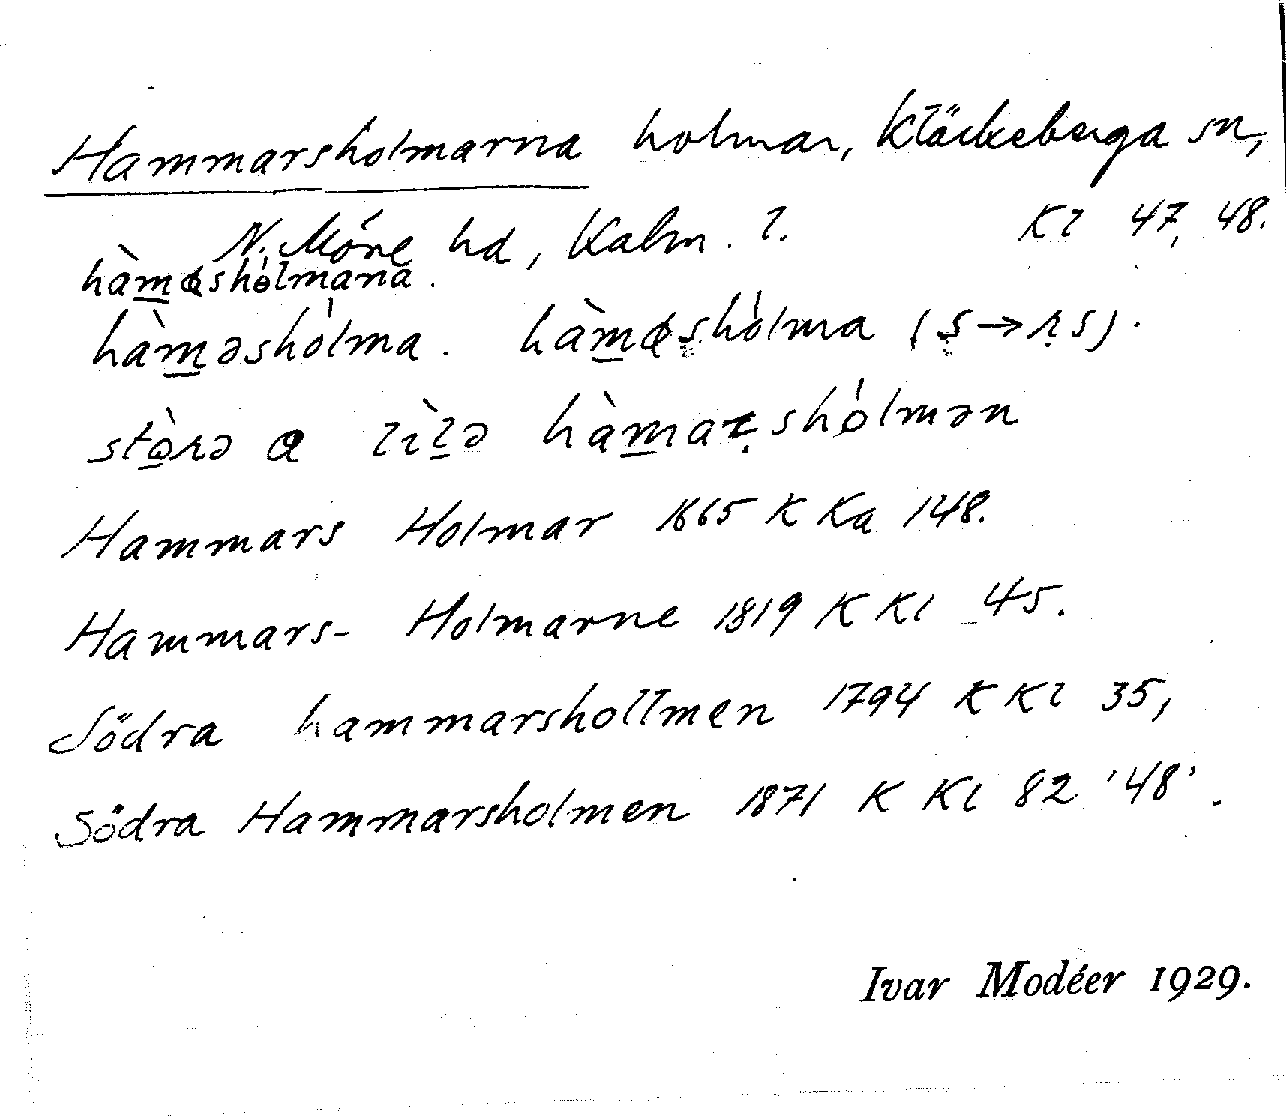 Hammarsholmarna holmar, Kläckeberga sn,
N. Möre hd, Kalm. l. Kl 47, 48.
hàm̲ɑshòlmana.
hàm̲əshòlma. hàm̲ɑʂhòlma (ʂ→ṛs).
stò̲rə ɑ lìl̲ə hàm̲aṛshólmən
Hammars Holmar 1665 K Ka 148.
Hammars- Holmarne 1819 K Kl 45.
Södra hammarshollmen 1794 K Kl 35,
Södra Hammarsholmen 1871 K Kl 82 '48'.
Ivar Modéer 1929.